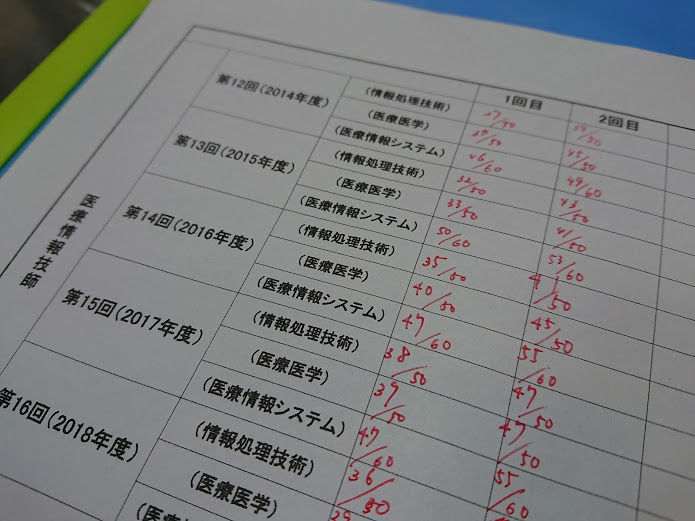 1回目 2回目
医療情報技師
第12回(2014年度) (情報処理技術) 27/50
(医療医学) 45/50
(医療情報システム) 46/60 49/60
第13回(2015年度) (情報処理技術) 32/50 43/50
(医療医学) 33/50 41/50
(医療情報システム) 50/60 53/60
第14回(2016年度) (情報処理技術) 35/50 41/50
(医療医学) 40/50 45/50
(医療情報システム) 47/60 55/60
第15回(2017年度) (情報処理技術) 38/50 47/50
(医療医学) 39/50 47/50
(医療情報システム) 47/60 55/60
第16回(2018年度) (情報処理技術) 36/50
(医療医学)
(医療情